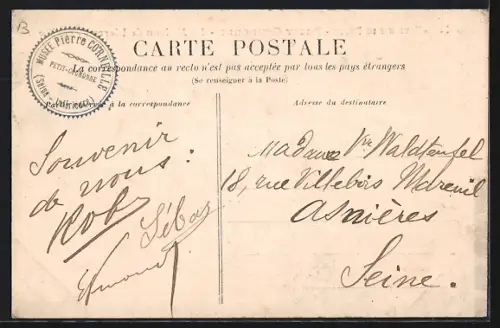 B
MUSÉE Pierre CORNEILLE
PETIT-COURONNE
CARTE POSTALE
La correspondance au recto n'est pas acceptée par tous les pays étrangers
(Se renseigner à la Poste)
Partie réservée à la correspondance
Adresse du destinataire
Souvenir
de nous:
Madame Vve Waldteufel
18, rue Villebois Mareuil
Asnières
Seine.